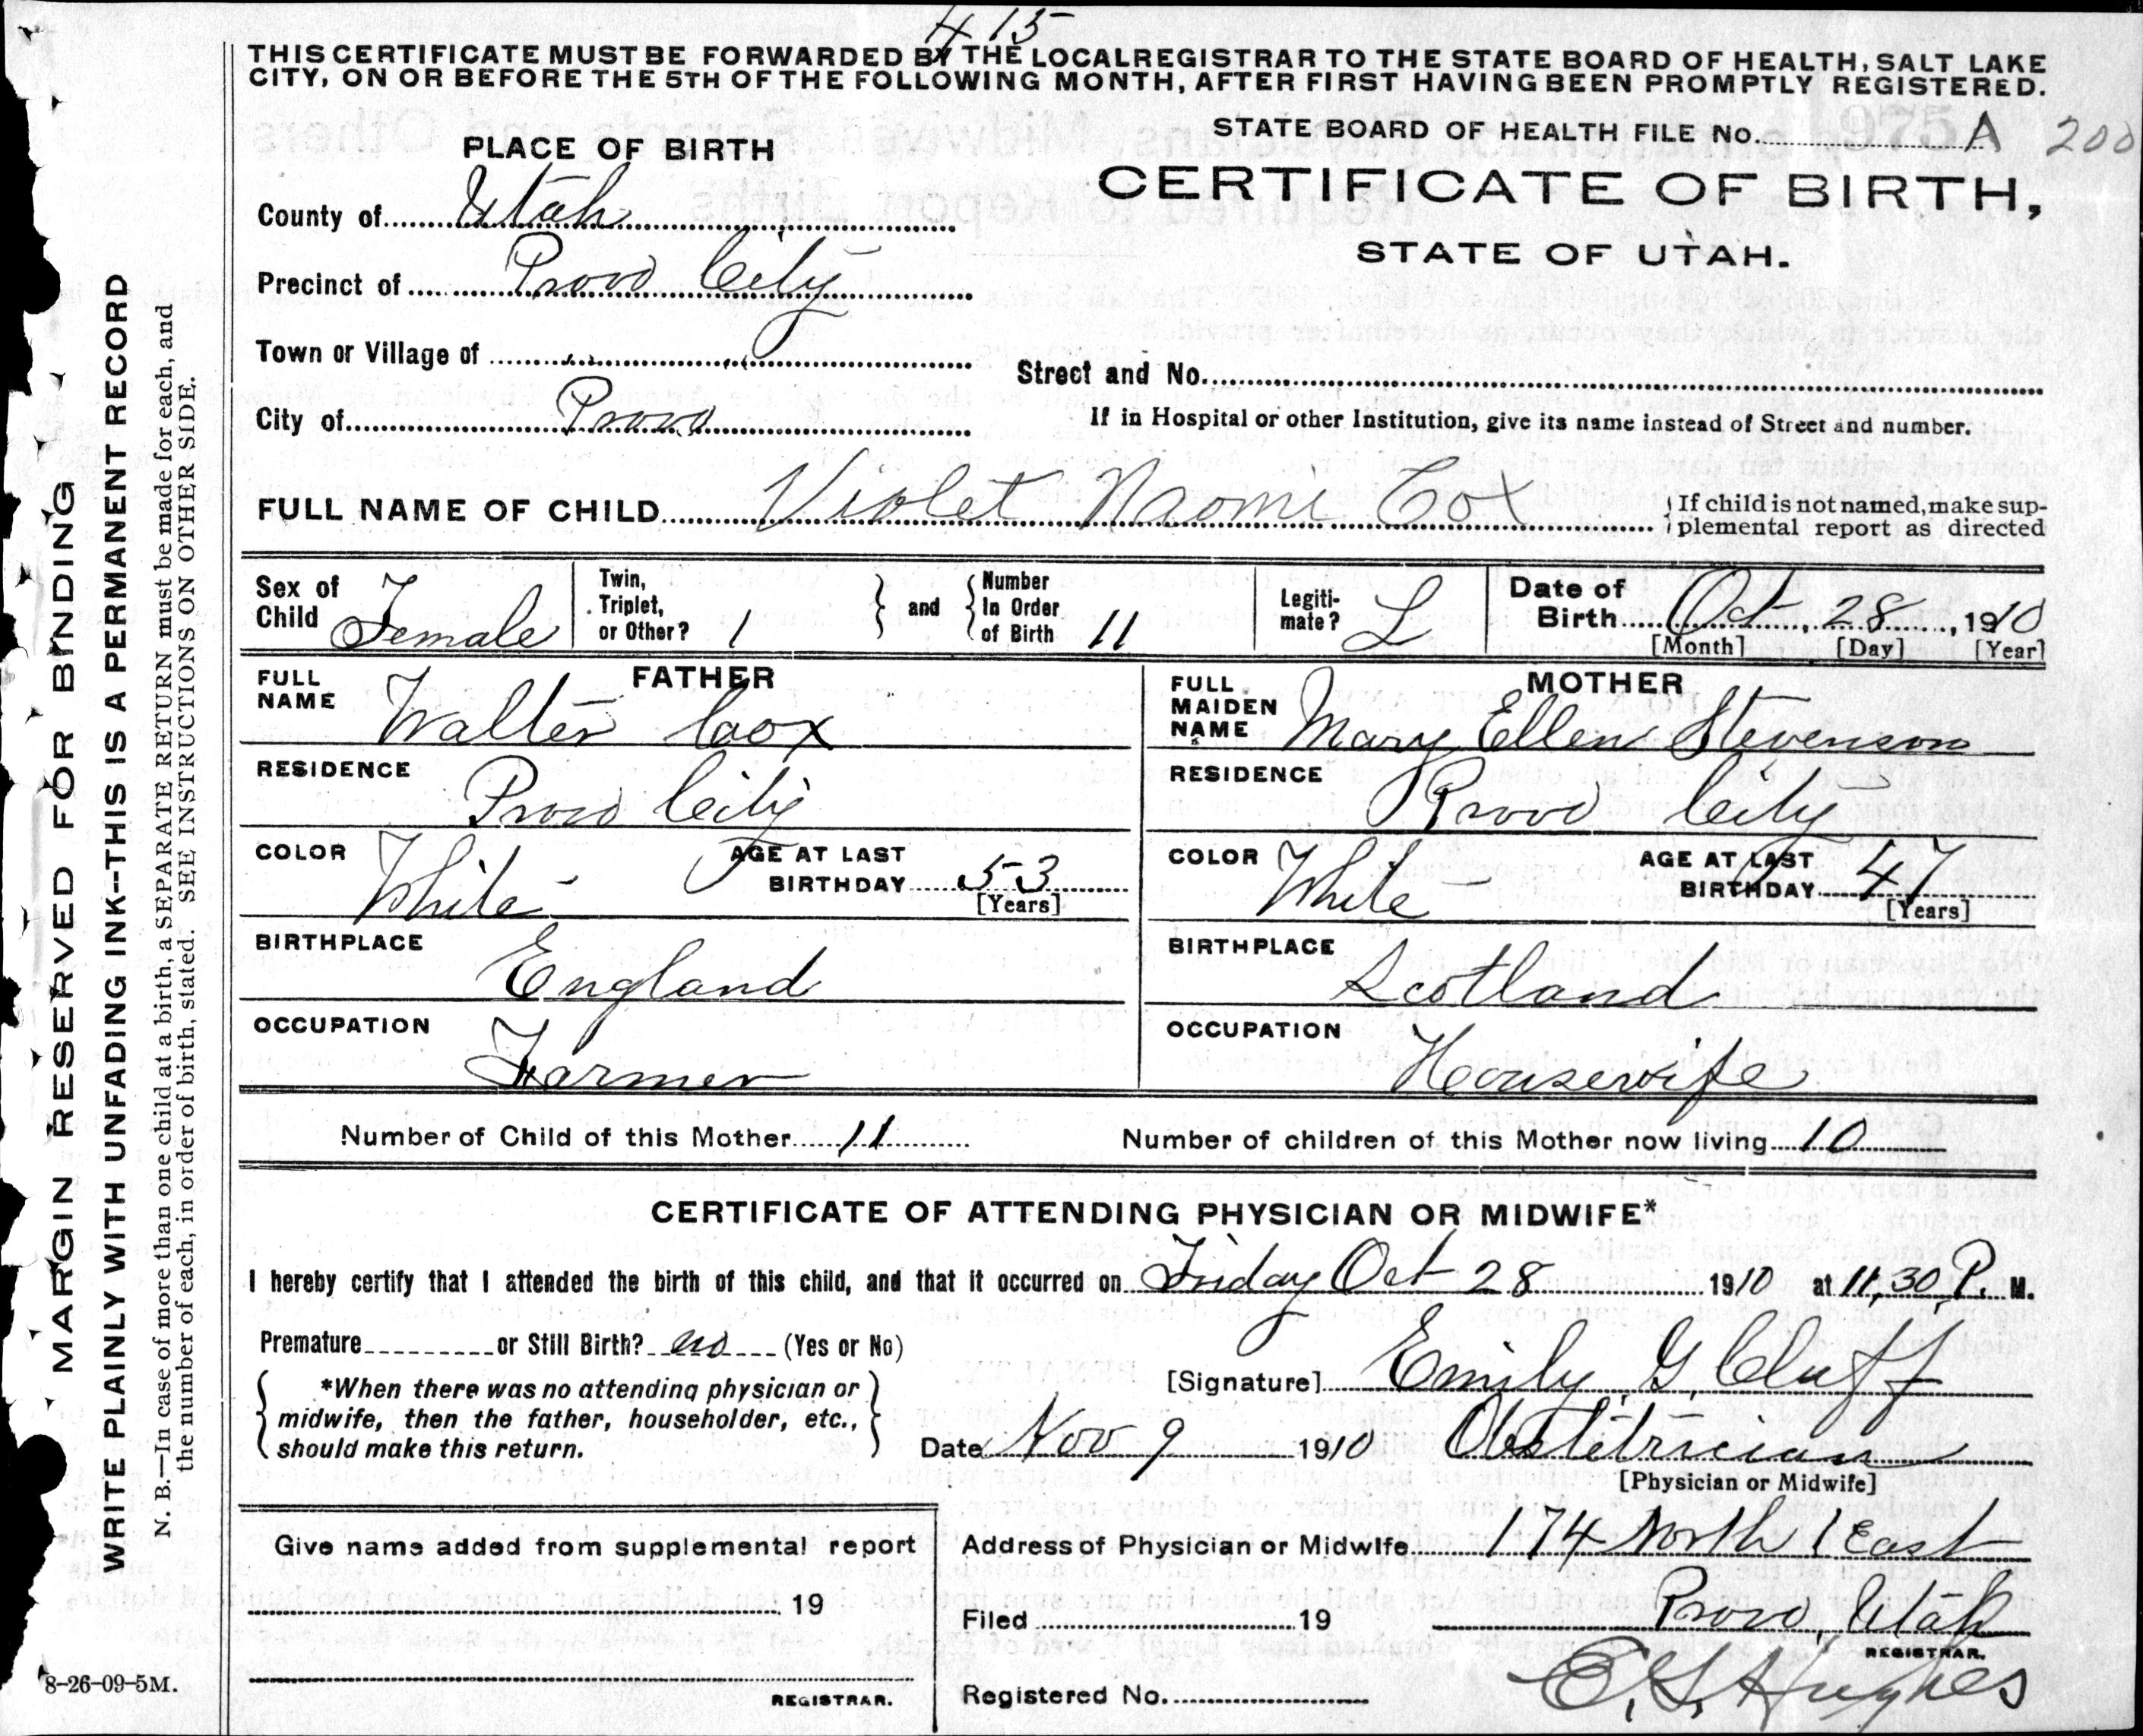 415
THIS CERTIFICATE MUST BE FORWARDED BY THE LOCAL REGISTRAR TO THE STATE BOARD OF HEALTH, SALT LAKE
CITY, ON OR BEFORE THE 5TH OF THE FOLLOWING MONTH, AFTER FIRST HAVING BEEN PROMPTLY REGISTERED.
STATE BOARD OF HEALTH FILE No. 975 A 200
PLACE OF BIRTH
CERTIFICATE OF BIRTH,
STATE OF UTAH.
County of Utah
Precinct of Provo City
Town or Village of " "
Street and No.
City of Provo
If in Hospital or other Institution, give its name instead of Street and number.
FULL NAME OF CHILD Violet Naomi Cox
If child is not named, make sup-
plemental report as directed
Sex of Child Female
Twin, Triplet, or Other? 1
and
Number In Order of Birth 11
Legiti-mate? L
Date of Birth Oct, 28, 1910
[Month] [Day] [Year]
FATHER
FULL NAME Walter Coox
RESIDENCE Provo City
COLOR White
AGE AT LAST BIRTHDAY 53
[Years]
BIRTHPLACE England
OCCUPATION Farmer
MOTHER
FULL MAIDEN NAME Mary Ellen Stevenson
RESIDENCE Provo City
COLOR White
AGE AT LAST BIRTHDAY 47
[Years]
BIRTHPLACE Scotland
OCCUPATION Housewife
Number of Child of this Mother 11
Number of children of this Mother now living 10
CERTIFICATE OF ATTENDING PHYSICIAN OR MIDWIFE*
I hereby certify that I attended the birth of this child, and that it occurred on Friday Oct 28 1910 at 11,30, P. M.
Premature or Still Birth? no (Yes or No)
*When there was no attending physician or
midwife, then the father, householder, etc.,
should make this return.
[Signature] Emily G. Cluff
Date Nov 9 1910 Obstetrician
[Physician or Midwife]
Give name added from supplemental report
19
REGISTRAR.
Address of Physician or Midwife 174 North 1 East
Provo, Utah
Filed 19
REGISTRAR.
Registered No.
E. G. Hughes
MARGIN RESERVED FOR BINDING
WRITE PLAINLY WITH UNFADING INK--THIS IS A PERMANENT RECORD
N. B.—In case of more than one child at a birth, a SEPARATE RETURN must be made for each, and
the number of each, in order of birth, stated. SEE INSTRUCTIONS ON OTHER SIDE.
8-26-09-5M.